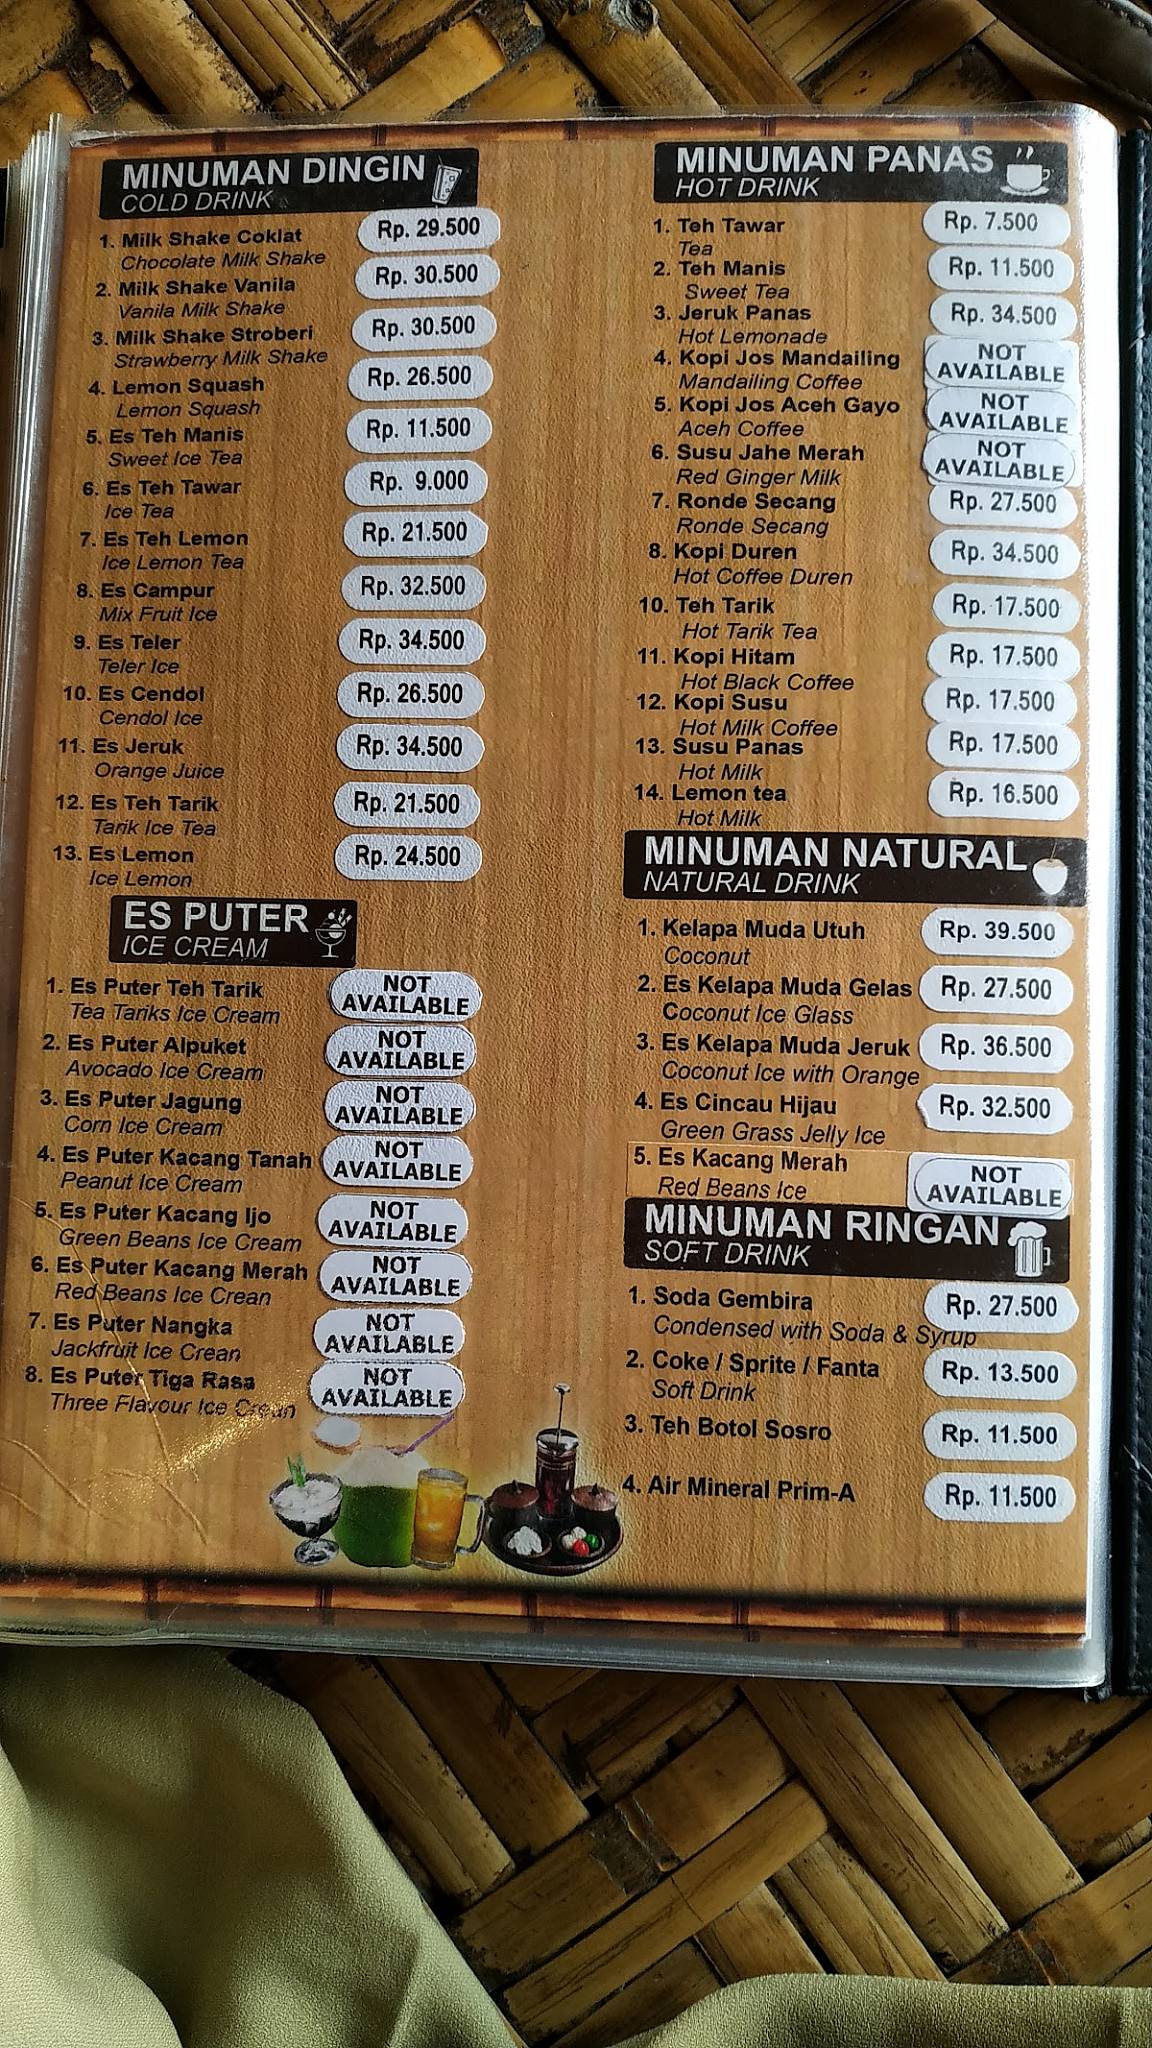 MINUMAN DINGIN
COLD DRINK
1. Milk Shake Coklat Rp. 29.500
Chocolate Milk Shake
2. Milk Shake Vanila Rp. 30.500
Vanila Milk Shake
3. Milk Shake Stroberi Rp. 30.500
Strawberry Milk Shake
4. Lemon Squash Rp. 26.500
Lemon Squash
5. Es Teh Manis Rp. 11.500
Sweet Ice Tea
6. Es Teh Tawar Rp. 9.000
Ice Tea
7. Es Teh Lemon Rp. 21.500
Ice Lemon Tea
8. Es Campur Rp. 32.500
Mix Fruit Ice
9. Es Teler Rp. 34.500
Teler Ice
10. Es Cendol Rp. 26.500
Cendol Ice
11. Es Jeruk Rp. 34.500
Orange Juice
12. Es Teh Tarik Rp. 21.500
Tarik Ice Tea
13. Es Lemon Rp. 24.500
Ice Lemon
ES PUTER
ICE CREAM
1. Es Puter Teh Tarik NOT AVAILABLE
Tea Tariks Ice Cream
2. Es Puter Alpuket NOT AVAILABLE
Avocado Ice Cream
3. Es Puter Jagung NOT AVAILABLE
Corn Ice Cream
4. Es Puter Kacang Tanah NOT AVAILABLE
Peanut Ice Cream
5. Es Puter Kacang Ijo NOT AVAILABLE
Green Beans Ice Cream
6. Es Puter Kacang Merah NOT AVAILABLE
Red Beans Ice Crean
7. Es Puter Nangka NOT AVAILABLE
Jackfruit Ice Crean
8. Es Puter Tiga Rasa NOT AVAILABLE
Three Flavour Ice Crean
MINUMAN PANAS
HOT DRINK
1. Teh Tawar Rp. 7.500
Tea
2. Teh Manis Rp. 11.500
Sweet Tea
3. Jeruk Panas Rp. 34.500
Hot Lemonade
4. Kopi Jos Mandailing NOT AVAILABLE
Mandailing Coffee
5. Kopi Jos Aceh Gayo NOT AVAILABLE
Aceh Coffee
6. Susu Jahe Merah NOT AVAILABLE
Red Ginger Milk
7. Ronde Secang Rp. 27.500
Ronde Secang
8. Kopi Duren Rp. 34.500
Hot Coffee Duren
10. Teh Tarik Rp. 17.500
Hot Tarik Tea
11. Kopi Hitam Rp. 17.500
Hot Black Coffee
12. Kopi Susu Rp. 17.500
Hot Milk Coffee
13. Susu Panas Rp. 17.500
Hot Milk
14. Lemon tea Rp. 16.500
Hot Milk
MINUMAN NATURAL
NATURAL DRINK
1. Kelapa Muda Utuh Rp. 39.500
Coconut
2. Es Kelapa Muda Gelas Rp. 27.500
Coconut Ice Glass
3. Es Kelapa Muda Jeruk Rp. 36.500
Coconut Ice with Orange
4. Es Cincau Hijau Rp. 32.500
Green Grass Jelly Ice
5. Es Kacang Merah NOT AVAILABLE
Red Beans Ice
MINUMAN RINGAN
SOFT DRINK
1. Soda Gembira Rp. 27.500
Condensed with Soda & Syrup
2. Coke / Sprite / Fanta Rp. 13.500
Soft Drink
3. Teh Botol Sosro Rp. 11.500
4. Air Mineral Prim-A Rp. 11.500